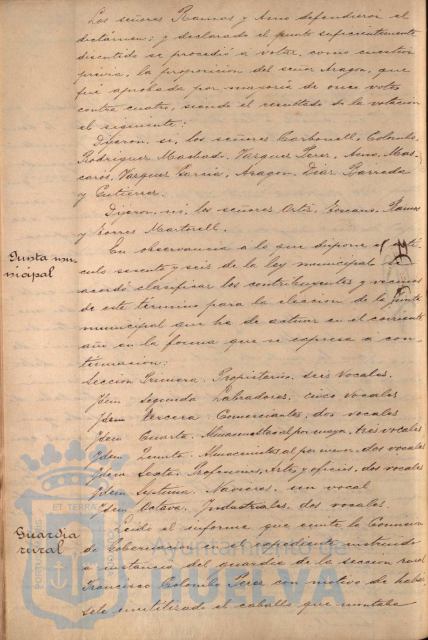 Los señores Ramos y Asno defendieron el
dictámen; y declarado el punto suficientemente
discutido se procedió a votar, como cuestion
prévia, la proposicion del señor Aragon, que
fué aprobada por mayoria de once votos
contra cuatro, siendo el resultado de la votacion
el siguiente:
Dijeron, si, los señores Carbonell, Colombo,
Rodriguez Machado, Vazquez Perez, Mas-
caros, Vazquez Garcia, Aragon, Diaz Barreda
y Gutierrez.
Dijeron, no, los señores Ortiz, Toscano, Ramos
y Torres Martinell.
Junta mu-
nicipal
En observancia a lo que dispone el artí-
culo sesenta y seis de la ley municipal se
acordó clasificar los contribuyentes y vecinos
de este término para la eleccion de la junta
municipal que ha de actuar en el corriente
año en la forma que se expresa a con-
tinuacion:
Seccion Primera. Propietarios. seis Vocales.
Idem Segunda Labradores, cinco vocales
Idem Tercera. Comerciantes, dos vocales
Idem Cuarta. Almacenistas al por mayor, tres vocales
Idem Quinta. Almacenistas al por menor, dos vocales
Idem Sexta. Profesiones, Artes y oficios, dos vocales
Idem Septima. Navieros. un vocal
Idem Octava. Industriales. dos vocales.
Guardia
rural
Leido el informe que emite la Comision
de Gobernacion en el expediente instruido
a instancia del guardia de la seccion rural
Francisco Colombo Perez con motivo de habér-
sele inutilizado el caballo que montaba
ET TERRA
Ayuntamiento de
HUELVA